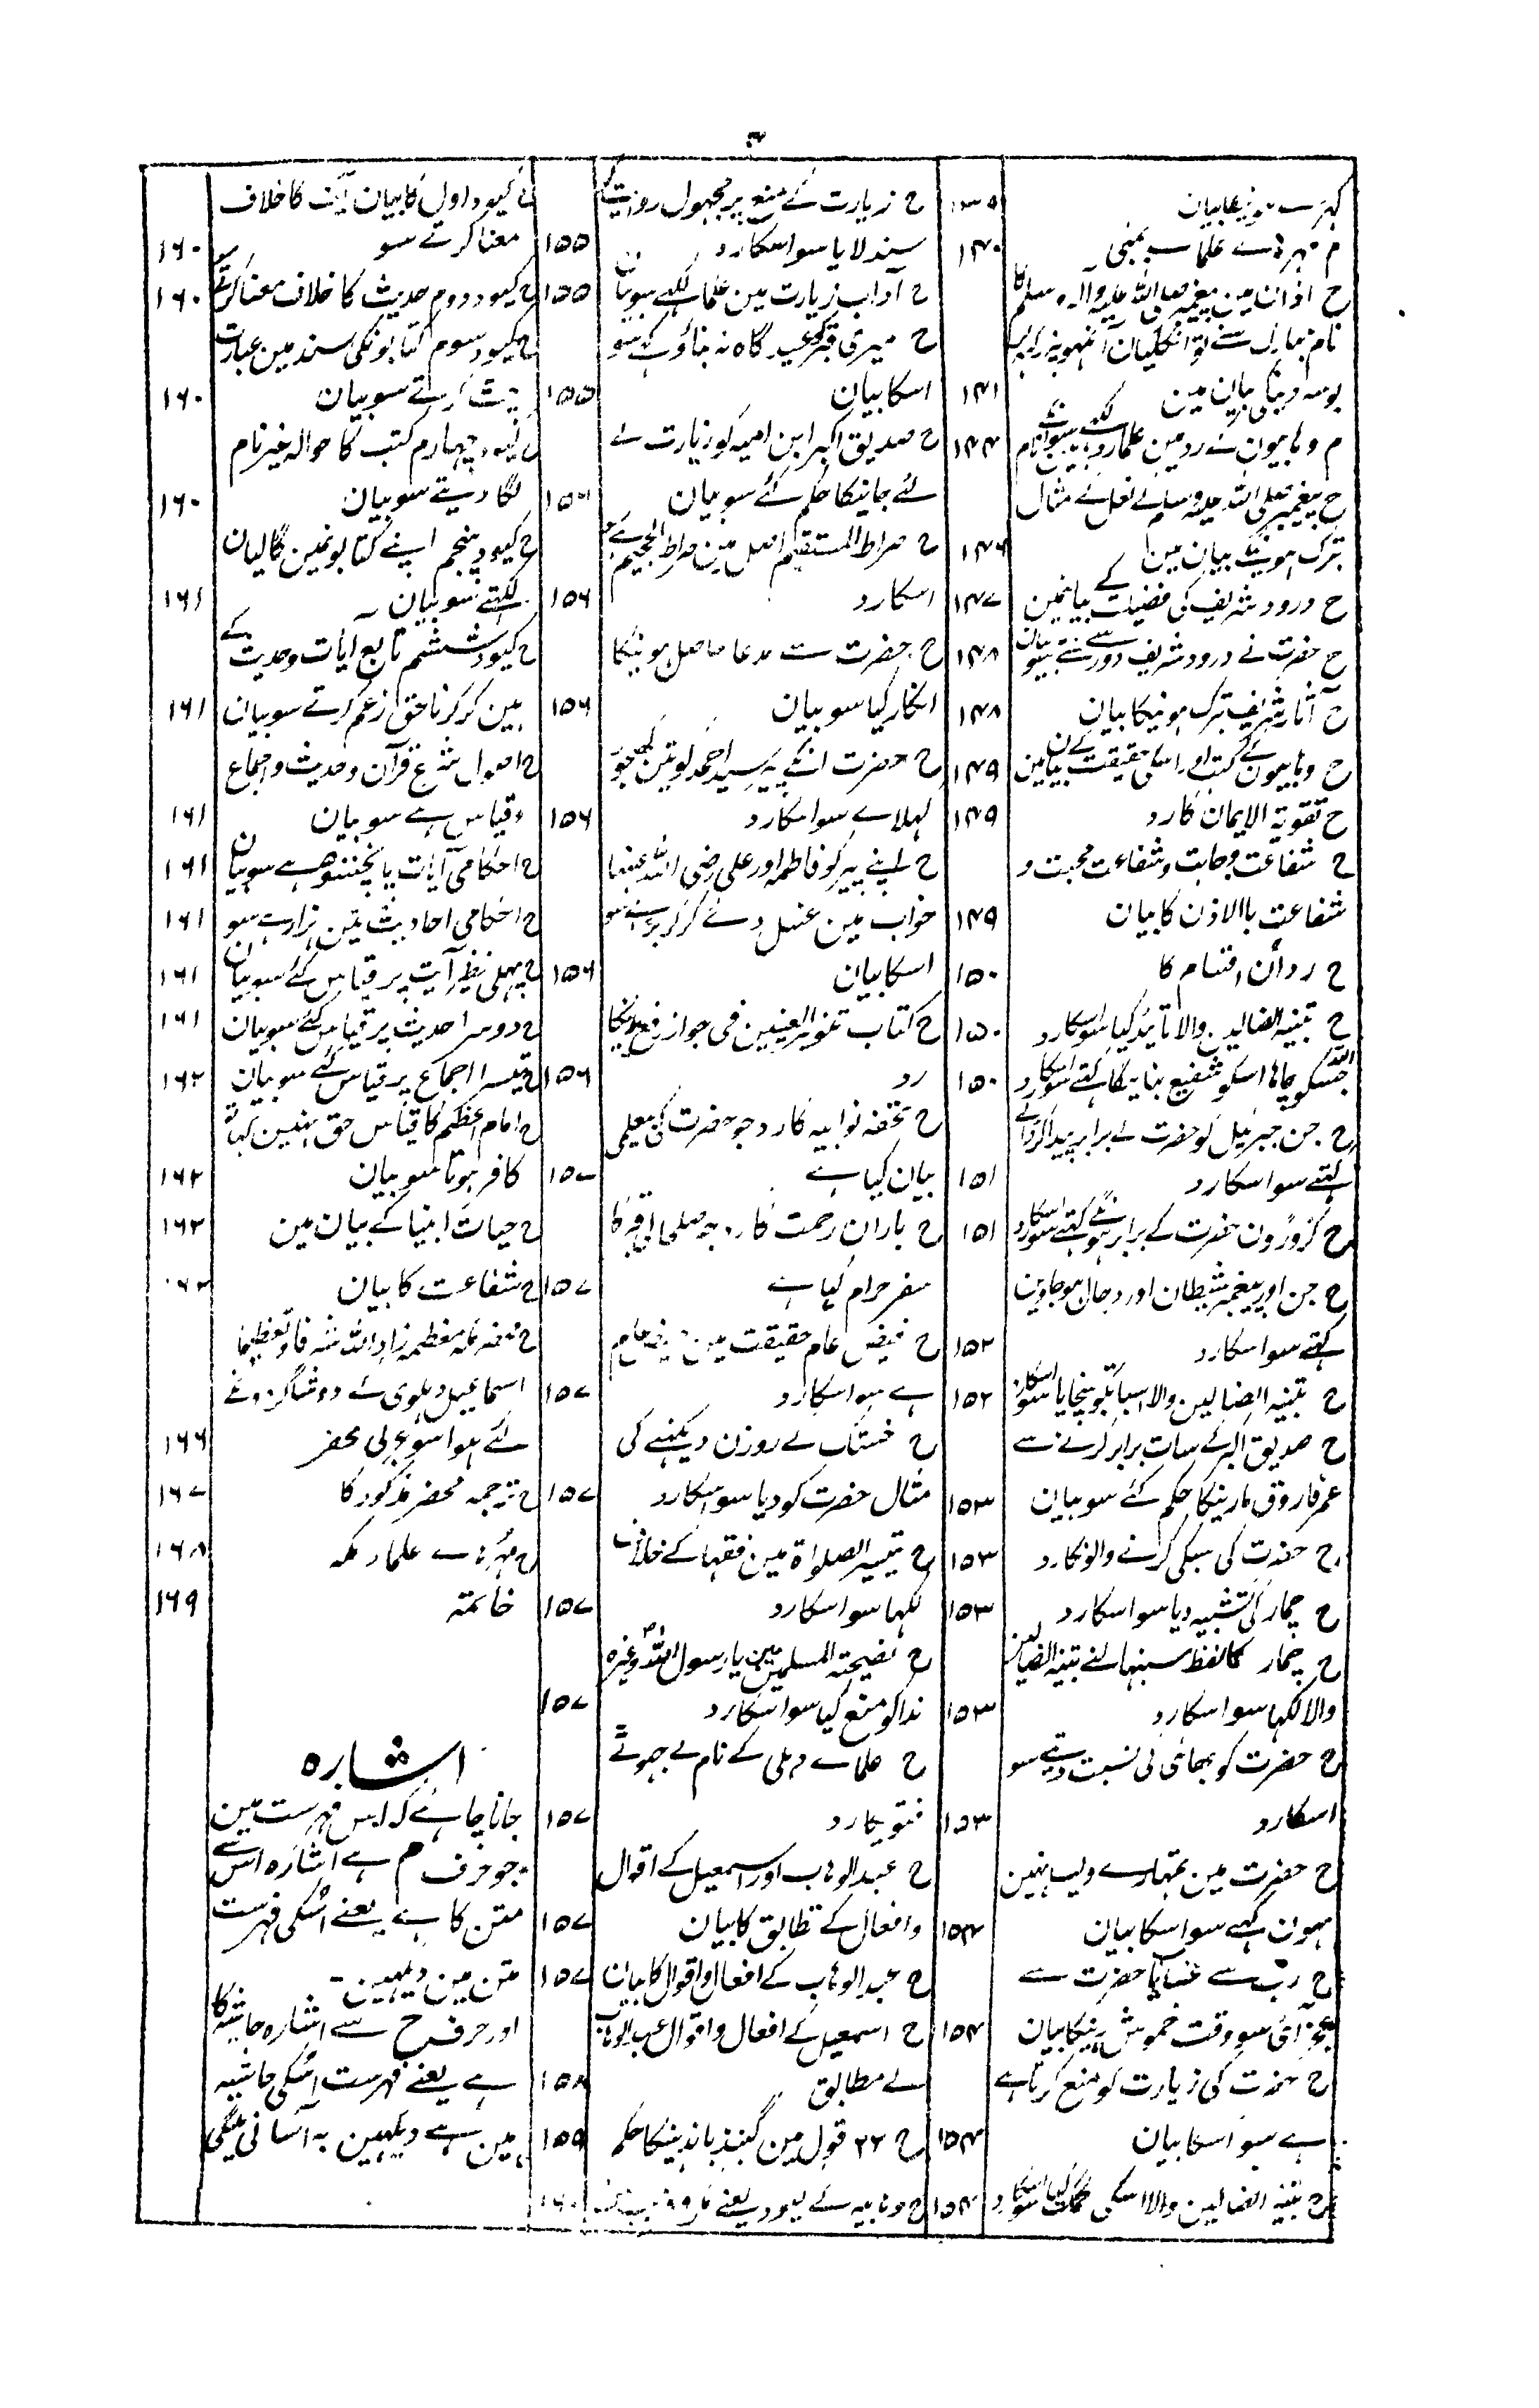 ۳
کہڑے ہونیکا بیان ۱۳۹
م مہرہاے علماے بمبئی ۱۴۰
ح اذان مین پیغمبر صلی اللہ علیہ وآلہ وسلم کا
نام مبارک سنے تو انگلیان آنکہونپر
بوسہ دینیکے بیان مین ۱۴۱
م وہابیون کے رد مین علما
ح پیغمبر صلی اللہ علیہ وسلم کے نعل کے مثال
تبرک ہونیکے بیان مین ۱۴۶
ح درود شریف کی فضیلت کے بیانمین ۱۴۷
ح حضرت نے درود شریف دور سے سنتے سو بیان ۱۴۸
ح آثار شریف تبرک ہونیکا بیان ۱۴۸
ح وہابیون کے کتب اور اسکی حقیقت کے بیانمین ۱۴۹
ح تقویۃ الایمان کا رد ۱۴۹
ح شفاعت وجاہت و شفاعت محبت و
شفاعت باالاذن کا بیان ۱۴۹
ح رد أن اقسام کا ۱۵۰
ح تنبیہ الضالین والا تائید کیا سو اسکا رد ۱۵۰
اللہ جسکو چاہا اسکو شفیع بنائیگا کہتے سو اسکا رد ۱۵۰
ح جن جبرئیل کو حضرت کے برابر پیدا کرڈالے
کہتے سو اسکا رد ۱۵۱
ح کڑوڑون حضرت کے برابر ہونگے کہتے سو اسکا رد ۱۵۱
ح جن اور پیغمبر شیطان اور دجال ہو جاوین
کہتے سو اسکا رد ۱۵۲
ح تنبیہ الضالین والا اسبات کو پہنچایا سو اسکا رد ۱۵۲
ح صدیق اکبر کے سات برابر کرنے سے
عمر فاروق مارنیکا حکم کئے سو بیان ۱۵۳
ح حضرت کی سبکی کرنے والونکا رد ۱۵۳
ح چمار کی تشبیہ دیا سو اسکا رد ۱۵۳
ح چمار کا لفظ سنبہالنے تنبیہ الضالین
والا لکہا سو اسکا رد ۱۵۳
ح حضرت کو بھائی کی نسبت دیتے سو
اسکا رد ۱۵۳
ح حضرت مین تمہارے ویسا نہین
ہون کہے سو اسکا بیان ۱۵۴
ح رب سے عنایات حضرت سے
عجز آئی سو وقت خموش رہنیکا بیان ۱۵۴
ح حضرت کی زیارت کو منع کرتا ہے
ہے سو اسکا بیان ۱۵۴
ح تنبیہ الضالین والا اسکی کمک کیا سو اسکا رد ۱۵۴
ح زیارت کے منع پر مجہول روایت کی
سند لایا سو اسکا رد ۱۵۵
ح آداب زیارت مین علما لکہے سو بیان ۱۵۵
ح میری قبر کو عید گاہ نہ بناؤ کہے سو
اسکا بیان ۱۵۵
ح صدیق اکبر ابن امیہ کو زیارت کے
لئے جانیکا حکم کئے سو بیان ۱۵۶
ح صراط المستقیم اصل مین صراط الجحیم ہے
اسکا رد ۱۵۶
ح حضرت سے مدعا حاصل ہونیکا
انکار کیا سو بیان ۱۵۶
ح حضرت انکے پیر سید احمد کو تین کھجور
کہلاے سو اسکا رد ۱۵۶
ح اپنے پیر کو فاطمہ اور علی رضی اللہ عنہما
خواب مین غسل دئے کرکر
اسکا بیان ۱۵۶
ح کتاب تنویر العینین فی جواز رفع یدین کا
رد ۱۵۶
ح تحفہ نوابیہ کا رد جو حضرت کی بیعلمی
بیان کیا ہے ۱۵۷
ح باران رحمت کا رد جو صلحا کی قبر کا
سفر حرام کہا ہے ۱۵۷
ح فیض عام حقیقت مین
ہے سو اسکا رد ۱۵۷
ح خستک کے روزن دیکہنے کی
مثال حضرت کو دیا سو اسکا رد ۱۵۷
ح تیسیر الصلواۃ مین فقہا کے خلاف
لکہا سو اسکا رد ۱۵۷
ح نصیحتہ المسلمین مین یا رسول اللہ وغیرہ
ندا کو منع کیا سو اسکا رد ۱۵۷
ح علماے دہلی کے نام سے جہوٹے
فتویکا رد ۱۵۷
ح عبدالوہاب اور اسمعیل کے اقوال
وافعال کے تطابق کا بیان ۱۵۷
ح عبدالوہاب کے افعال واقوال کا بیان ۱۵۷
ح اسمعیل کے افعال و اقوال عبدالوہاب
کے مطابق ۱۵۸
ح ۲۲ قول مین گنبذ باندہنیکا حکم ۱۵۹
ح وہابیہ کے کیود یعنے ۱۶۰
کیود اول کا بیان آیت کا خلاف
معنا کرتے سو ۱۶۰
ح کیود دوم حدیث کا خلاف معنا کرتے ۱۶۰
ح کیود سوم کتابونکی سند مین عبارت
کرتے سو بیان ۱۶۰
ح کیود چہارم کتب کا حوالہ بغیر نام
لگا دیتے سو بیان ۱۶۰
ح کیود پنجم اپنے کتابونمین گالیان
لکہتے سو بیان ۱۶۱
ح کیود ششم تابع آیات وحدیث کے
ہین کر کر ناحق زعم کرتے سو بیان ۱۶۱
ح اصول شرع قرآن وحدیث واجماع
وقیاس ہے سو بیان ۱۶۱
ح احکامی آیات پانچسو ہے سو بیان ۱۶۱
ح احکامی احادیث تین ہزار ہے سو ۱۶۱
ح پہلی نظیر آیت پر قیاس کئے سو بیان ۱۶۱
ح دوسرا حدیث پر قیاس کئے سو بیان ۱۶۱
ح تیسرا اجماع پر قیاس کئے سو بیان ۱۶۲
ح امام اعظم کا قیاس حق نہین کہا تو
کافر ہوتا سو بیان ۱۶۲
ح حیات انبیا کے بیان مین ۱۶۲
ح شفاعت کا بیان
ح مکہ معظمہ زاد اللہ شرفا وتعظیما
اسماعیل دہلوی کے دو شاگردونکے
لئے ہوا سو عربی محضر ۱۶۶
ح ترجمہ محضر مذکور کا ۱۶۷
ح مہرہاے علماء مکہ ۱۶۸
خاتمہ ۱۶۹
اشارہ
جانا چاہئے کہ اس فہرست مین
جو حرف م ہے اشارہ اس سے
متن کا ہے یعنے اسکی فہرست
متن مین دیکہین ۔
اور حرف ح سے اشارہ حاشیہ کا
ہے یعنے فہرست اسکی حاشیہ
مین ہے دیکہین بہ آسانی ملیگی